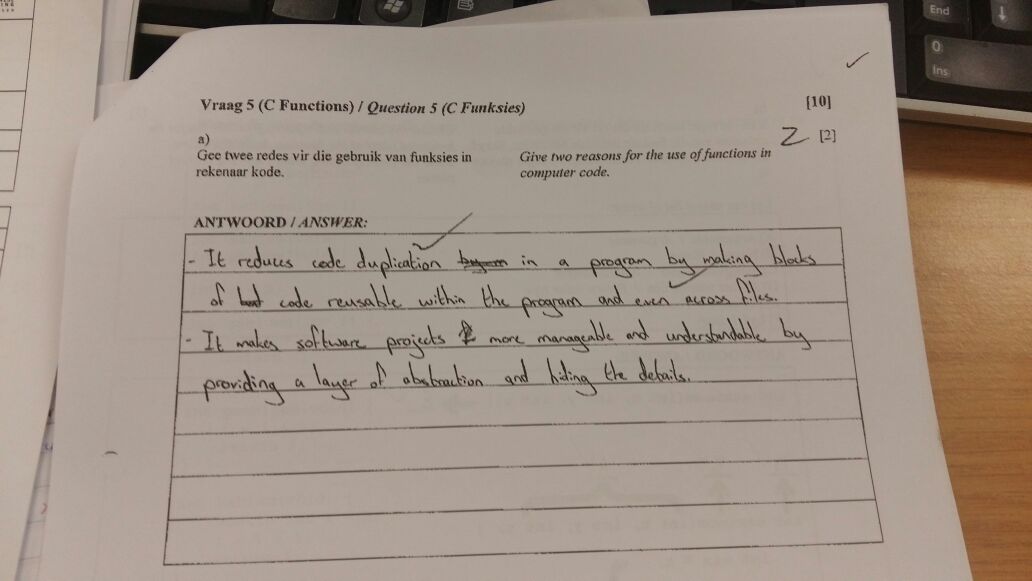 End
0
Ins
Vraag 5 (C Functions) / Question 5 (C Funksies) [10]
a) 2 [2]
Gee twee redes vir die gebruik van funksies in
rekenaar kode.
Give two reasons for the use of functions in
computer code.
ANTWOORD / ANSWER:
- It reduces code duplication in a program by making blocks
of code reusable within the program and even across files.
- It makes software projects more manageable and understandable by
providing a layer of abstraction and hiding the details.